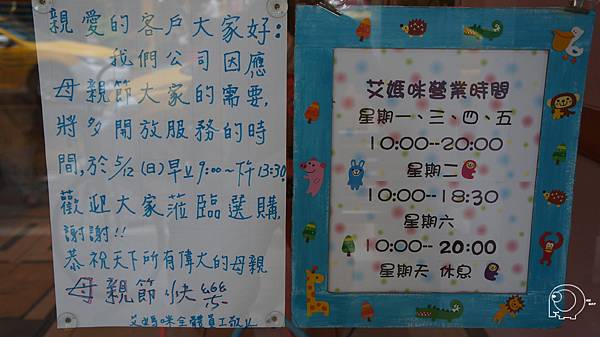 親愛的客戶大家好:
我們公司因應
母親節大家的需要,
將多開放服務的時
間,於5/12(日)早上9:00~下午13:30
歡迎大家蒞臨選購,
謝謝!!
恭祝天下所有偉大的母親
母親節快樂
艾媽咪全體員工敬上
艾媽咪營業時間
星期一、三、四、五
10:00--20:00
星期二
10:00--18:30
星期六
10:00--20:00
星期天 休息